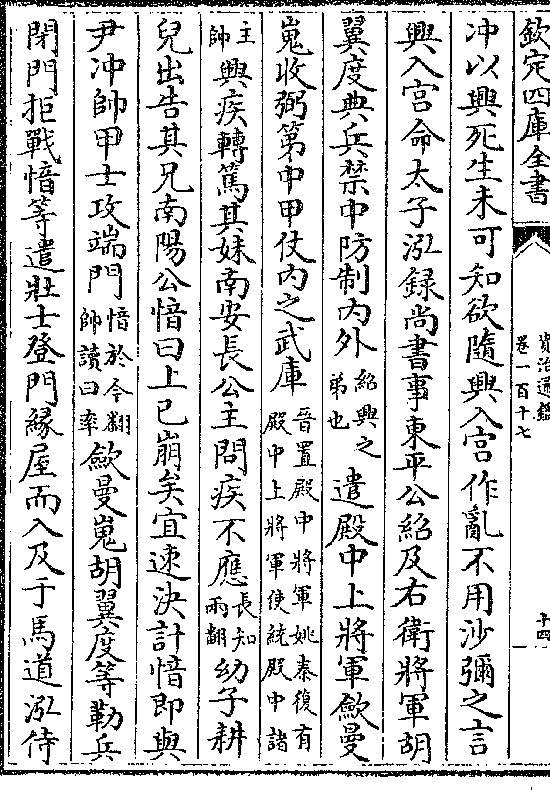 欽定四庫全書
資治通鑑
卷一百十七
十四
冲以興死生未可知欲隨興入宫作亂不用沙彌之言
興入宫命太子泓録尚書事東平公紹及右衛將軍胡
翼度典兵禁中防制内外紹興之弟也遣殿中上將軍歛曼
嵬收弼第中甲仗内之武庫晉置殿中將軍姚秦復有殿中上將軍使統殿中諸
主帥興疾轉篤其妹南安長公主問疾不應長知兩翻幼子耕
兒出告其兄南陽公愔曰上已崩矣宜速決計愔即與
尹冲帥甲士攻端門愔於今翻帥讀曰率歛曼嵬胡翼度等勒兵
閉門拒戰愔等遣壯士登門緣屋而入及于馬道泓侍